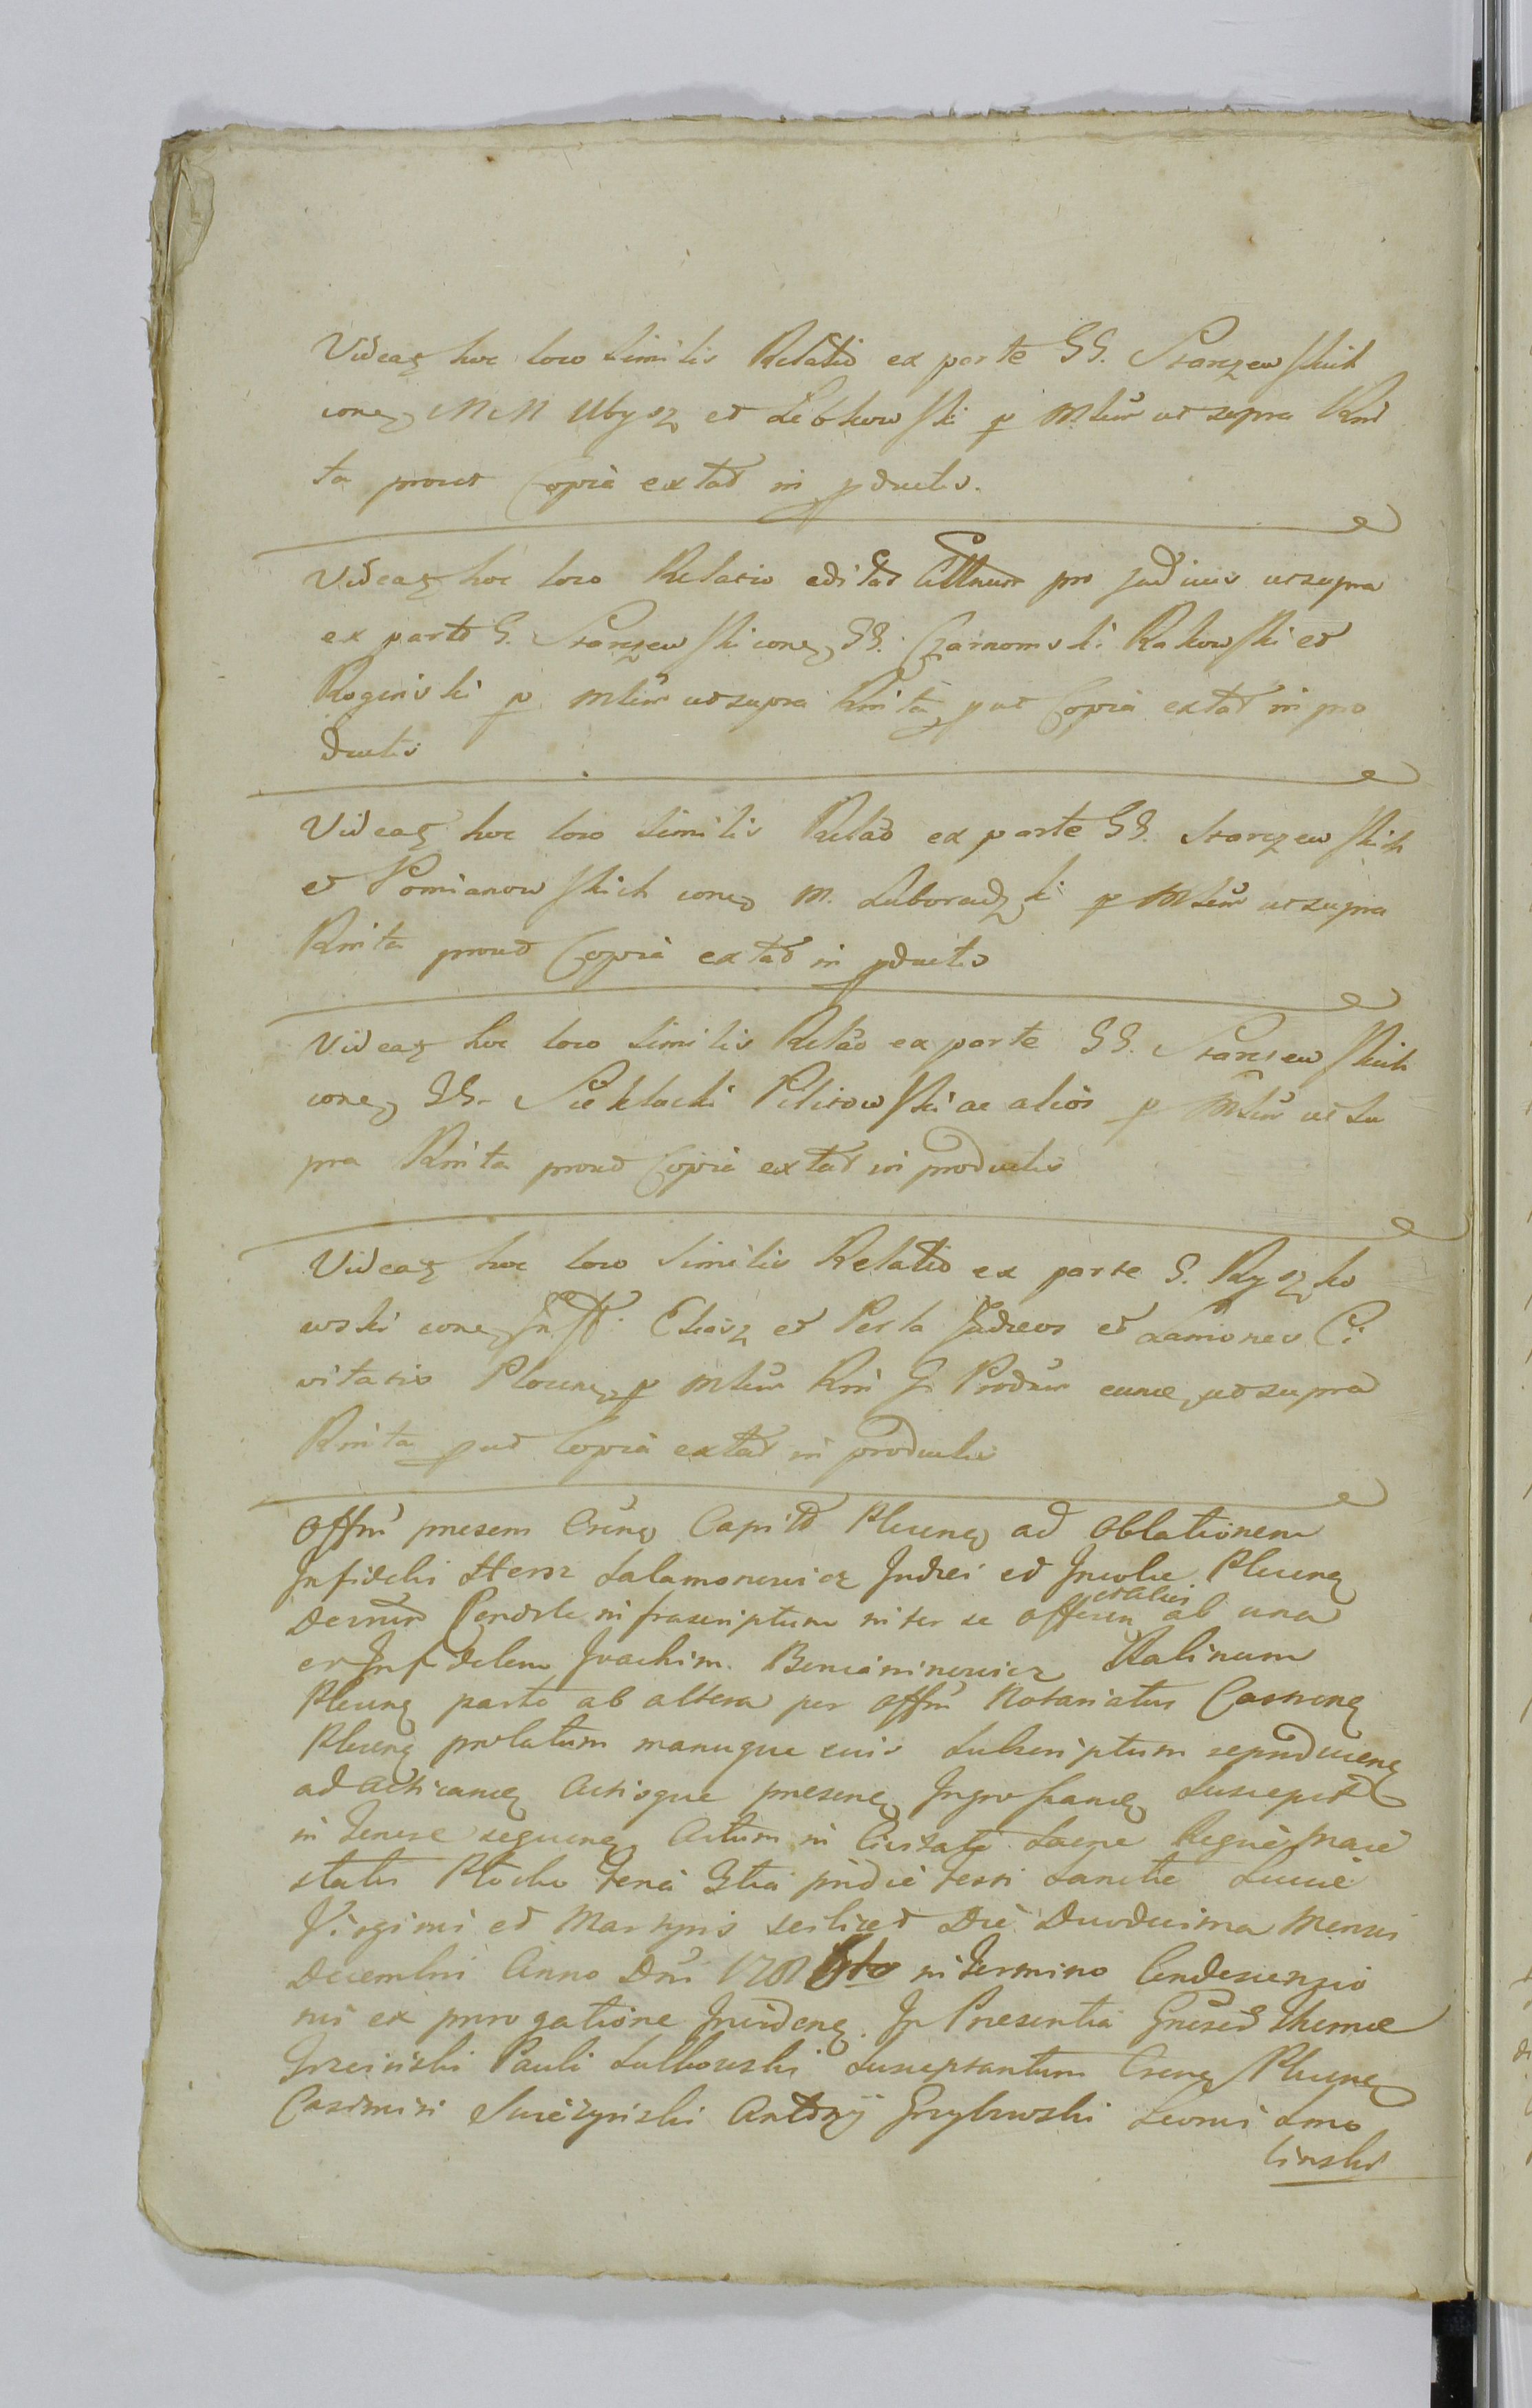 Videatz hoc loco Similis Relatio ex parte GG. Starczewskich
conez MM Ubysz et Lebkowski p Mltum ut supra Rni
ta prout Copia extat in pductis.
Videatz hoc loco Relatio editat pro judiciis ut supra
ex parte G. Starczewski conez GG. Czarnomski Rakowski et
Roginski p Mltum ut supra Rnita put Copia extat in pro
ductis
Videatz hoc loco Similis Relão ex parte GG. Starczewskich
et Pomianowskich conez M. Luboradzki p Mltum ut supra
Rnita prout Copia extat in pductis
Videatz hoc loco Similis Relão ex parte GG. Starczewskich
conez GG. Sieklucki Pilitowski ac alios p Mltum ut su
pra Rnita prout Copia extat in productis
Videatz hoc loco Similis Relatio ex parte G. Ryszko
wski conez Eliasz et Perla Judeos et Laniones Ci
vitatis Plocenz p Mltum Rni G. ut supra
Rnita put Copia extat in productis
Offm presens Crense Capitle Plocenz ad Oblationem
Infidelis Hersz Salamonowicz Judei et Incolae Plocenz
Decretum infrascriptum inter se Offerenz et alios ab una
et Infidelem Joachim Beniaminowicz Rabinum
Plocenz parte ab altera per Offm Notariatus Castrenz
Plocenz prolatum manuque eius Subscriptum reproducenz
ad Acticandz Actisque presenz Ingrossandz Suscepit
in Tenore sequenz Actum in Civitate Sacrae Regiae Maie
statis Plocko Feria 3tia pridie Festi Sanctae Luciae
Virginis et Martyris scilicet Die Duodecima Mensis
Decembris Anno Dni 178 in Termino Condescensio
nis ex prorogatione Incidenz. In Presentia Thomae
Pauli Sulkowski Susceptantum Crenz Plocenz
Casimiri Antonij Grzybowski Smo
linski